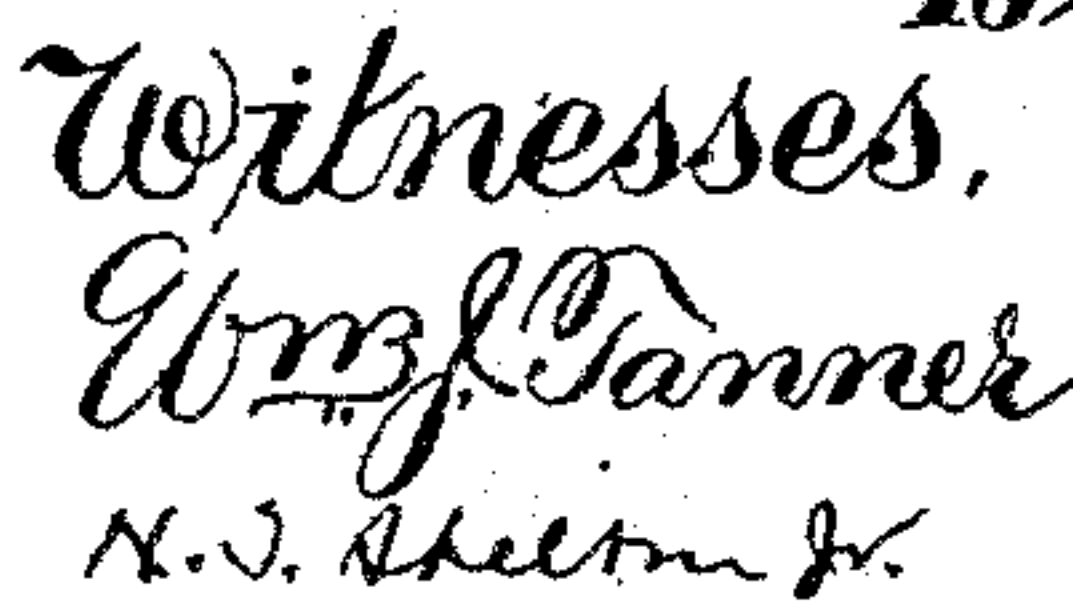 Witnesses.
Wm. J. Tanner
N. S. Shelton Jr.